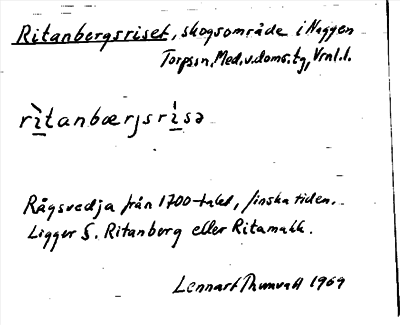 Ritanbergsriset, skogsområde i Naggen
Torpsn, Med. v. doms. tg, Vrnl. l.
rìtanbærjsrísə
Rågsvedja från 1700-talet, finska tiden.
Ligger S. Ritanberg eller Ritamakk.
Lennart Thunvall 1969